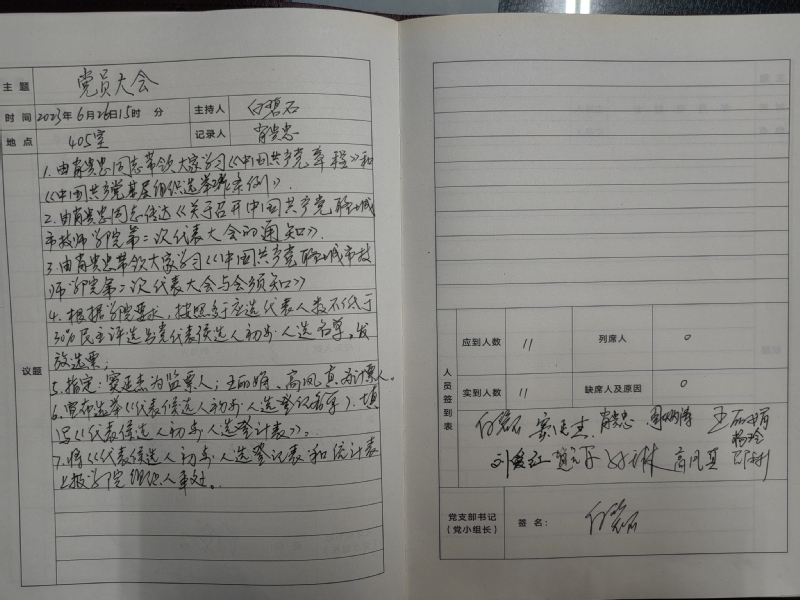 主 题 党员大会
时 间 2023年6月26日15时 分 主持人 白碧石
地 点 405室 记录人 肖贵忠
议题
1.由肖贵忠同志带领大家学习《中国共产党章程》和
《中国共产党基层组织选举工作条例》.
2.由肖贵忠同志传达《关于召开中国共产党聊城
市技师学院第二次代表大会的通知》.
3.由肖贵忠带领大家学习《中国共产党聊城市技
师学院第二次代表大会与会须知》
4.根据学院要求，按照多于应选代表人数不低于
30%民主评选出党代表候选人初步人选名单。发
放选票；
5.指定：窦延杰为监票人；王丽娟、高凤真为计票人。
6.宣布选举《代表候选人初步人选登记名单》.填
写《代表候选人初步人选登计表》。
7.将《代表候选人初步人选登记表和统计表
上报学院组织人事处。
人员签到表
应到人数 11 列席人 0
实到人数 11 缺席人及原因 0
白碧石 窦延杰 肖贵忠 王丽娟
杨玲
高凤真
党支部书记
（党小组长） 签 名： 白碧石